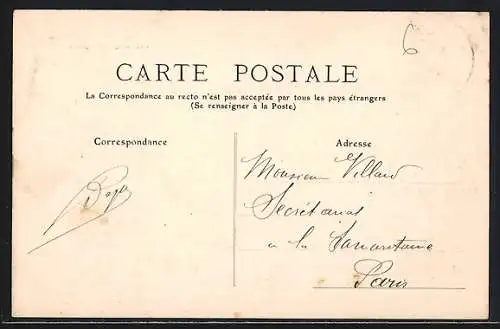 6
CARTE POSTALE
La Correspondance au recto n'est pas acceptée par tous les pays étrangers
(Se renseigner à la Poste)
Correspondance
Adresse
Monsieur Villard
Secrétariat
à la Samaritaine
Paris